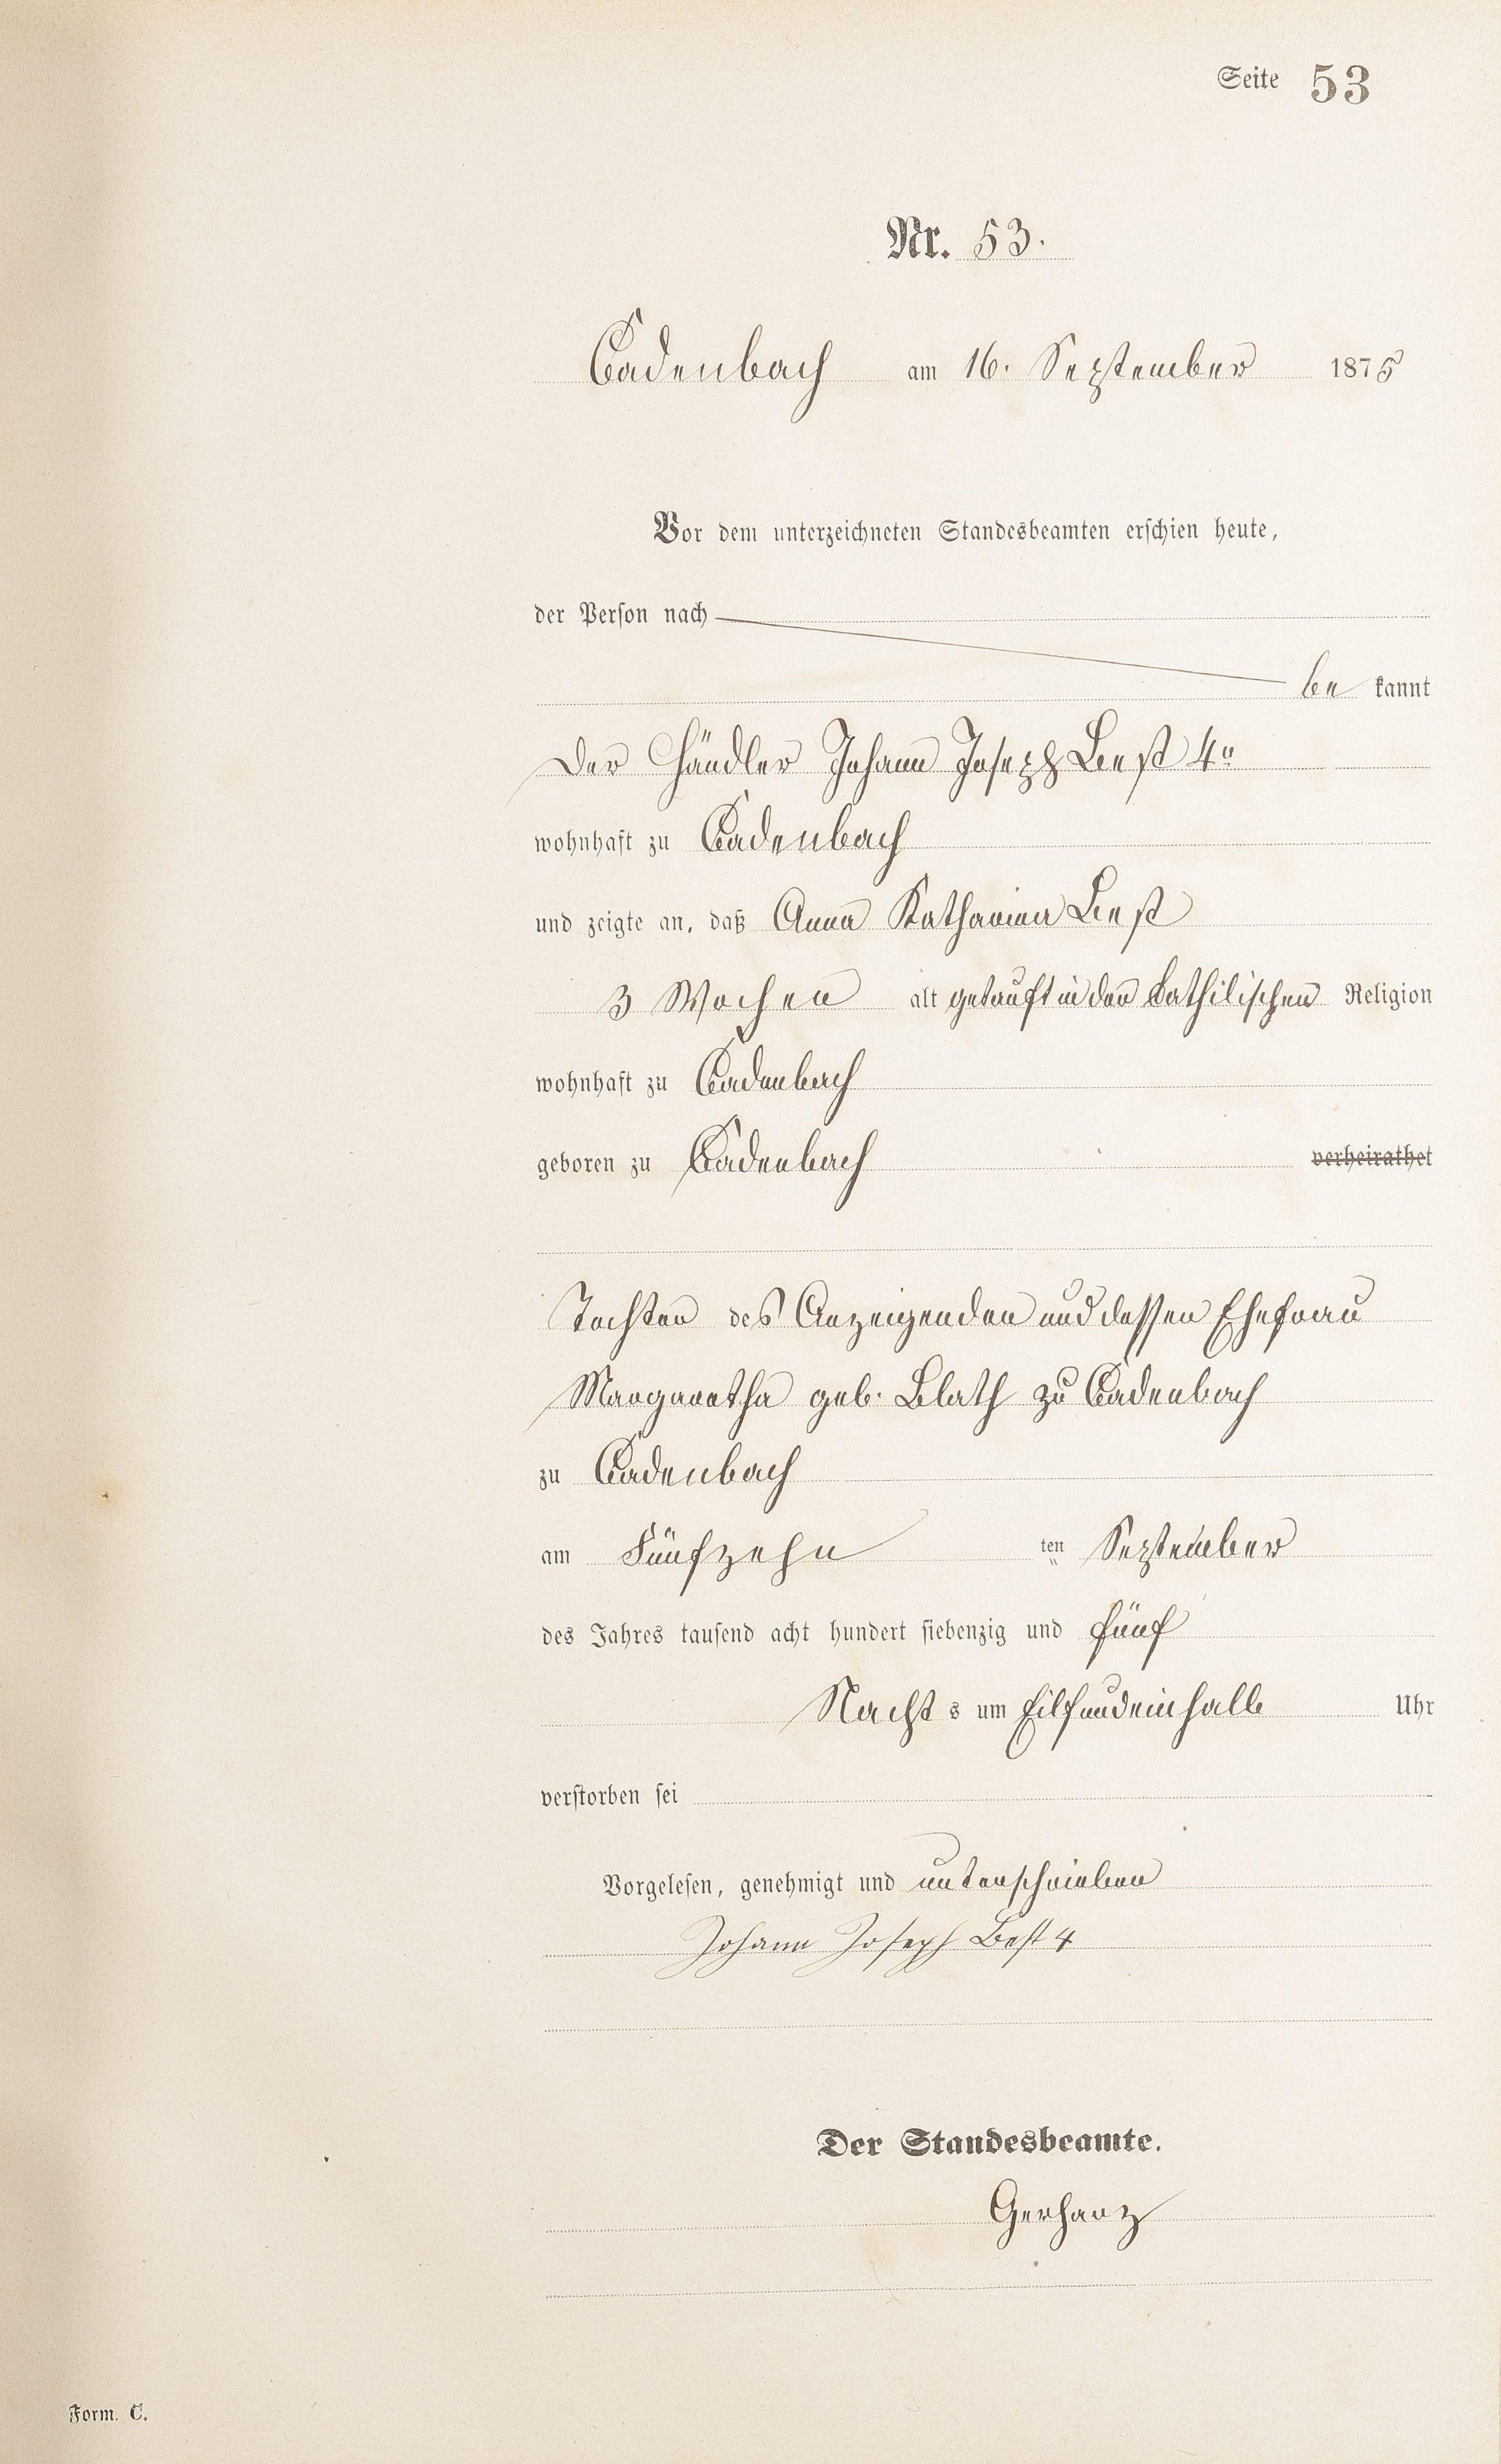 Seite 53
Nr. 53.
Cadenbach am 16. September 1875
Vor dem unterzeichneten Standesbeamten erschien heute,
der Person nach
be kannt
Der Händler Johann Joseph Best 4r
wohnhaft zu Cadenbach
und zeigte an, daß Anna Katharina Best
3 Wochen alt getauft in der kathilischen Religion
wohnhaft zu Cadenbach
geboren zu Cadenbach verheirathet
Tochter des Anzeigenden und dessen Ehefrau
Margaretha geb. Blath zu Cadenbach
zu Cadenbach
am Fünfzehn ten September
des Jahres tausend acht hundert siebenzig und fünf
Nacht s um Eilfundeinhalb Uhr
verstorben sei
Vorgelesen, genehmigt und unterschrieben
Johann Joseph Best 4
Der Standesbeamte.
Gerharz
Form. C.